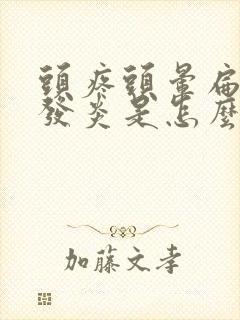 頭疼頭暈扁
發炎是怎麼
加藤文孝